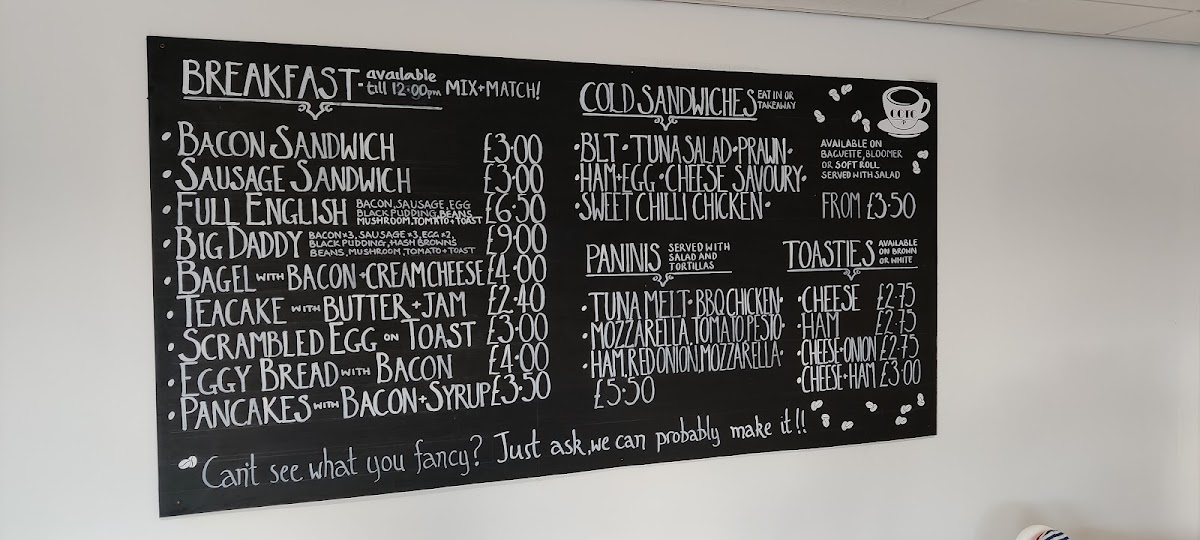 BREAKFAST - available till 12.00pm MIX+MATCH!
• BACON SANDWICH £3.00
• SAUSAGE SANDWICH £3.00
• FULL ENGLISH BACON, SAUSAGE, EGG £6.50
BLACK PUDDING, BEANS
MUSHROOM, TOMATO + TOAST
• BIG DADDY BACON x3, SAUSAGE x3, EGG x2, £9.00
BLACK PUDDING, HASH BROWNS
BEANS, MUSHROOM, TOMATO + TOAST
• BAGEL WITH BACON + CREAM CHEESE £4.00
• TEACAKE WITH BUTTER + JAM £2.40
• SCRAMBLED EGG ON TOAST £3.00
• EGGY BREAD WITH BACON £4.00
• PANCAKES WITH BACON + SYRUP £3.50
COLD SANDWICHES EAT IN OR
TAKEAWAY
• BLT • TUNA SALAD • PRAWN •
• HAM + EGG • CHEESE SAVOURY •
• SWEET CHILLI CHICKEN •
COTO
AVAILABLE ON
BAGUETTE, BLOOMER
OR SOFT ROLL
SERVED WITH SALAD
FROM £3.50
PANINIS SERVED WITH
SALAD AND
TORTILLAS
• TUNA MELT • BBQ CHICKEN •
• MOZZARELLA, TOMATO, PESTO •
• HAM, RED ONION, MOZZARELLA •
£5.50
TOASTIES AVAILABLE
ON BROWN
OR WHITE
• CHEESE £2.75
• HAM £2.75
• CHEESE + ONION £2.75
• CHEESE + HAM £3.00
Can't see what you fancy? Just ask, we can probably make it!!